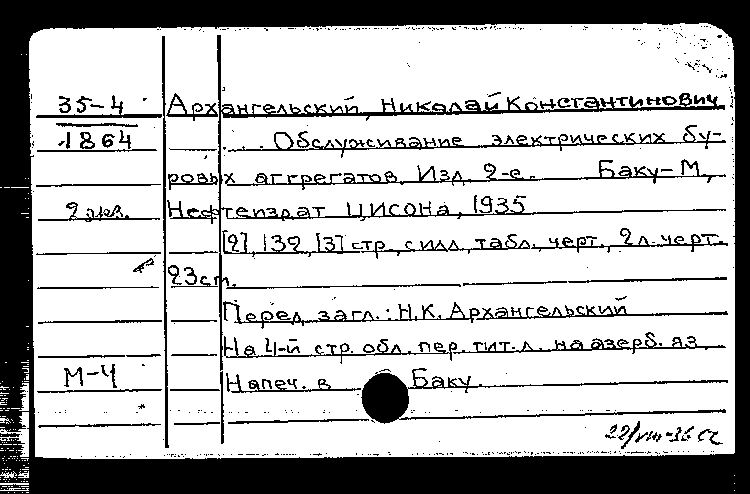 35-4 Архангельский, Николай Константинович
1864 Обслуживание электрических бу-
ровых аггрегатов. Изд. 2-е. Баку-М.,
2 экз. Нефтеиздат ЦИСОНа, 1935
[2], 132, [3] стр., с илл., табл., черт., 2 л. черт.
23 ст.
Перед загл.: Н.К. Архангельский
На 4-й стр. обл. пер. тит. л. на азерб. яз.
М-Ч Напеч. в Баку.
22/VIII-36